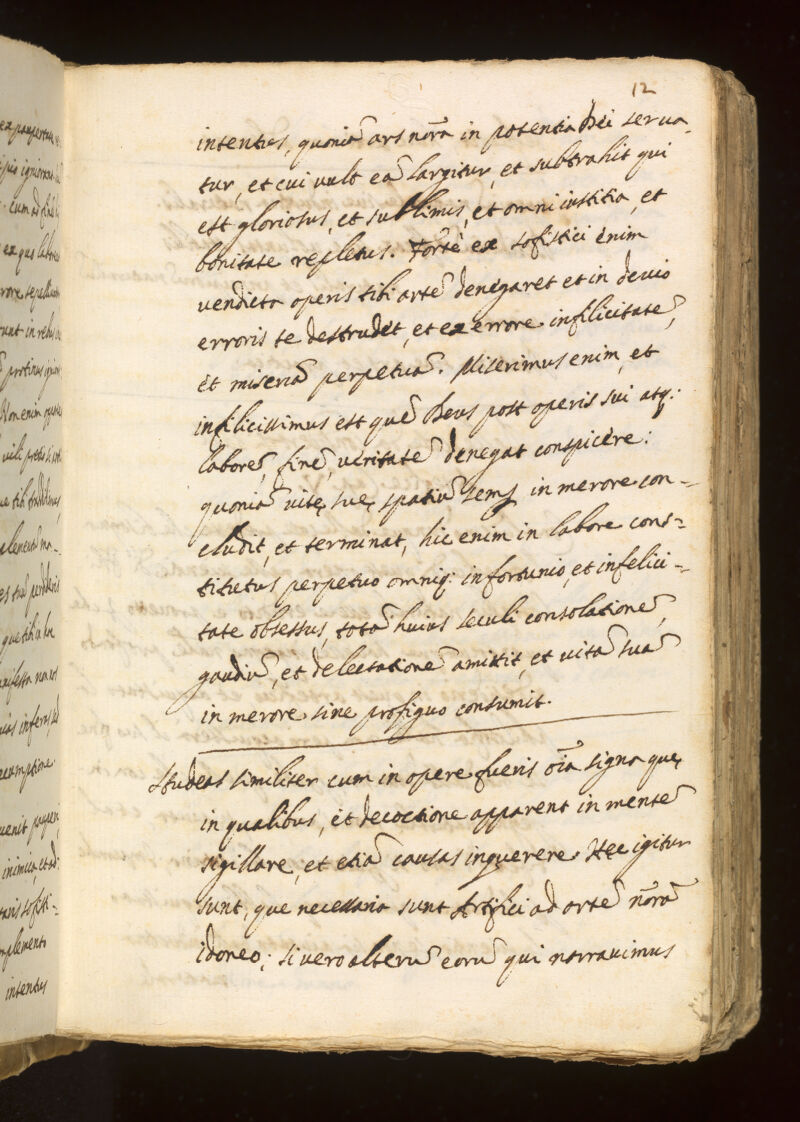 12
intentus, quoniā ars nr̄a in potentia Dei serua-
tur, et cui vult eā largitur, et subtrahit qui
est gloriosus, et sublimis, et omni iustitia, et
bonitate repletus. Forte ex sofistici enim
vendicta operis tibi artē denegaret et in devio
erroris te destrudet, et ex errore infilicitatē,
et miseriā perpetuā. Miserimus enim, et
infilicissimus est quē Deus post operis sui atq:
laborē, finē, veritatē denegat conspicere:
quoniā vitę, suę, spatiū semp in merore con-
cludit, et terminat, hic enim in labore cons=
titutus perpetuo omniq: infortunio, et infelici-
tate obsessus, totā huius seculi consolationē,
gaudiū, et delectationē amittit, et vitā suā
in merore sine profiquo consumit.
Studeas similiter cum in opere fueris oīa signa quę,
in qualibus, et decoctione apparent in mentē
sigillare, et etiā causas inquerere. Hec igitur
sunt, que necessaria sunt Artifici ad artē nr̄ā
idoneo; si vero alterū eorū qui narravimus
ex paupertate
cum ad
ex quo
protinus
Non enim
manifesta non
venit
inimica, et ad
sofisti-
intentus